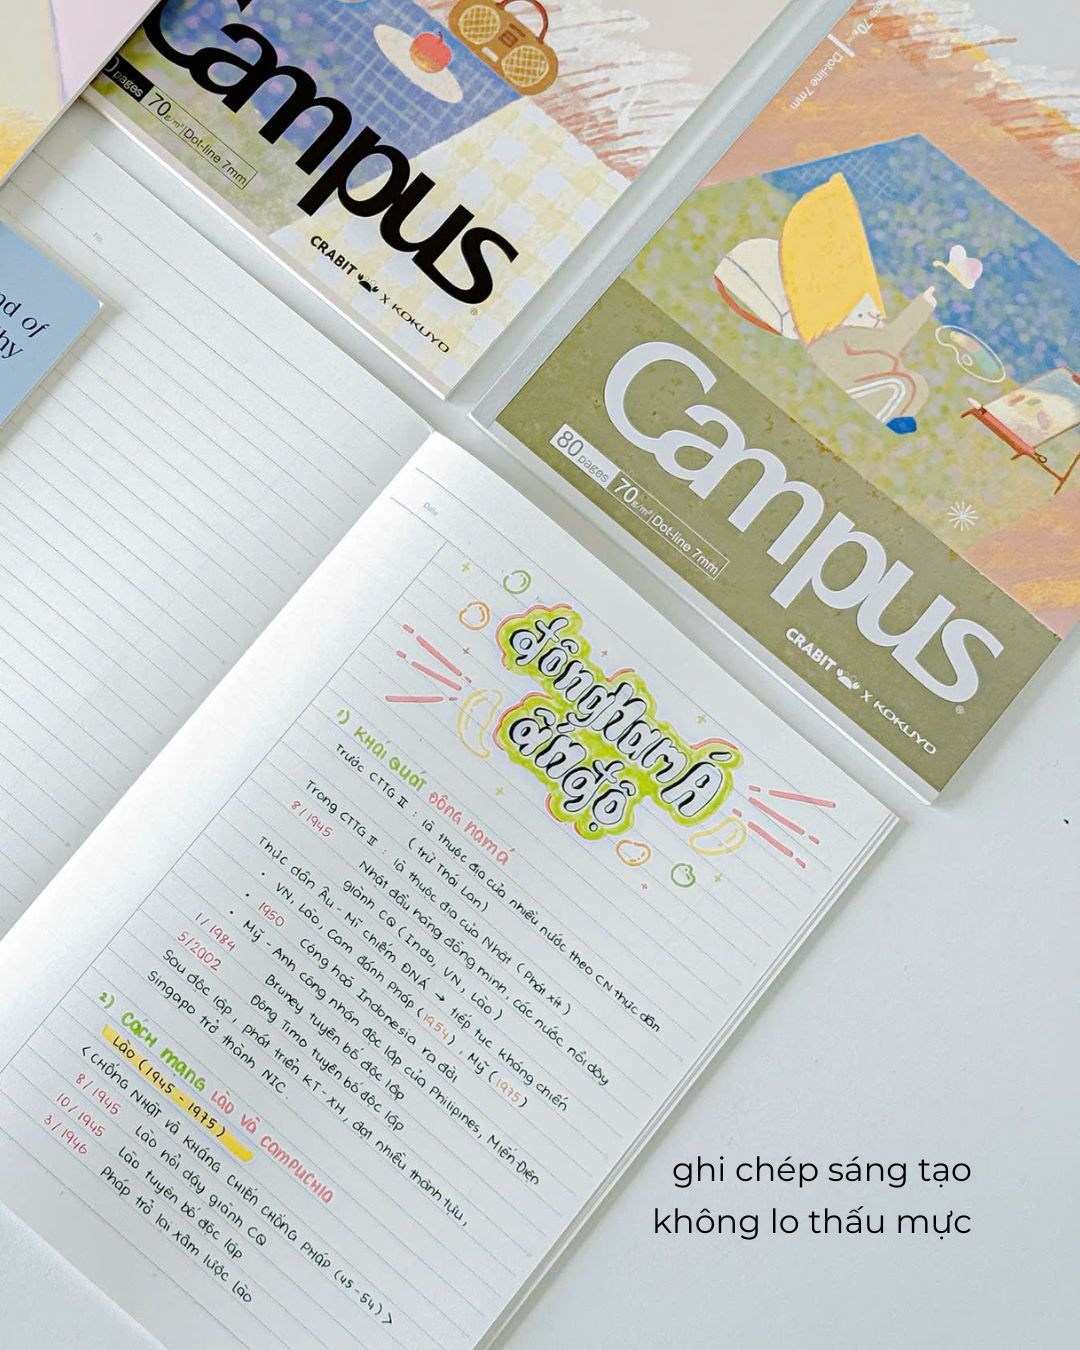 Campus
pages 70g/m² Dot-line 7mm
CRABIT x KOKUYO
Dot-line 7mm
Campus
80 pages 70g/m² Dot-line 7mm
CRABIT x KOKUYO
nd of
hy
No.
Date
đông Nam Á
ấn độ
1) KHÁI QUÁT ĐÔNG NAM Á
Trước CTTG II : là thuộc địa của nhiều nước theo CN thực dân
( trừ Thái Lan)
Trong CTTG II : là thuộc địa của Nhật ( Phát xít )
8/1945 Nhật đầu hàng đồng minh, các nước nổi dậy
giành CQ ( Indo, VN, Lào )
Thực dân Âu - Mĩ chiếm ĐNÁ → tiếp tục kháng chiến
• VN, Lào, Cam đánh Pháp (1954), Mỹ (1975)
• 1950 Cộng hoà Indonesia ra đời
• Mỹ - Anh công nhận độc lập của Philipines, Miến Điện
1/1984 Bruney tuyên bố độc lập
5/2002 Đông Timo tuyên bố độc lập
Sau độc lập, phát triển KT-XH, đạt nhiều thành tựu,
Singapo trở thành NIC.
2) CÁCH MẠNG LÀO VÀ CAMPUCHIA
Lào (1945 - 1975)
< CHỐNG NHẬT VÀ KHÁNG CHIẾN CHỐNG PHÁP (45-54) >
8/1945 Lào nổi dậy giành CQ
10/1945 Lào tuyên bố độc lập
3/1946 Pháp trở lại xâm lược Lào
ghi chép sáng tạo
không lo thấu mực